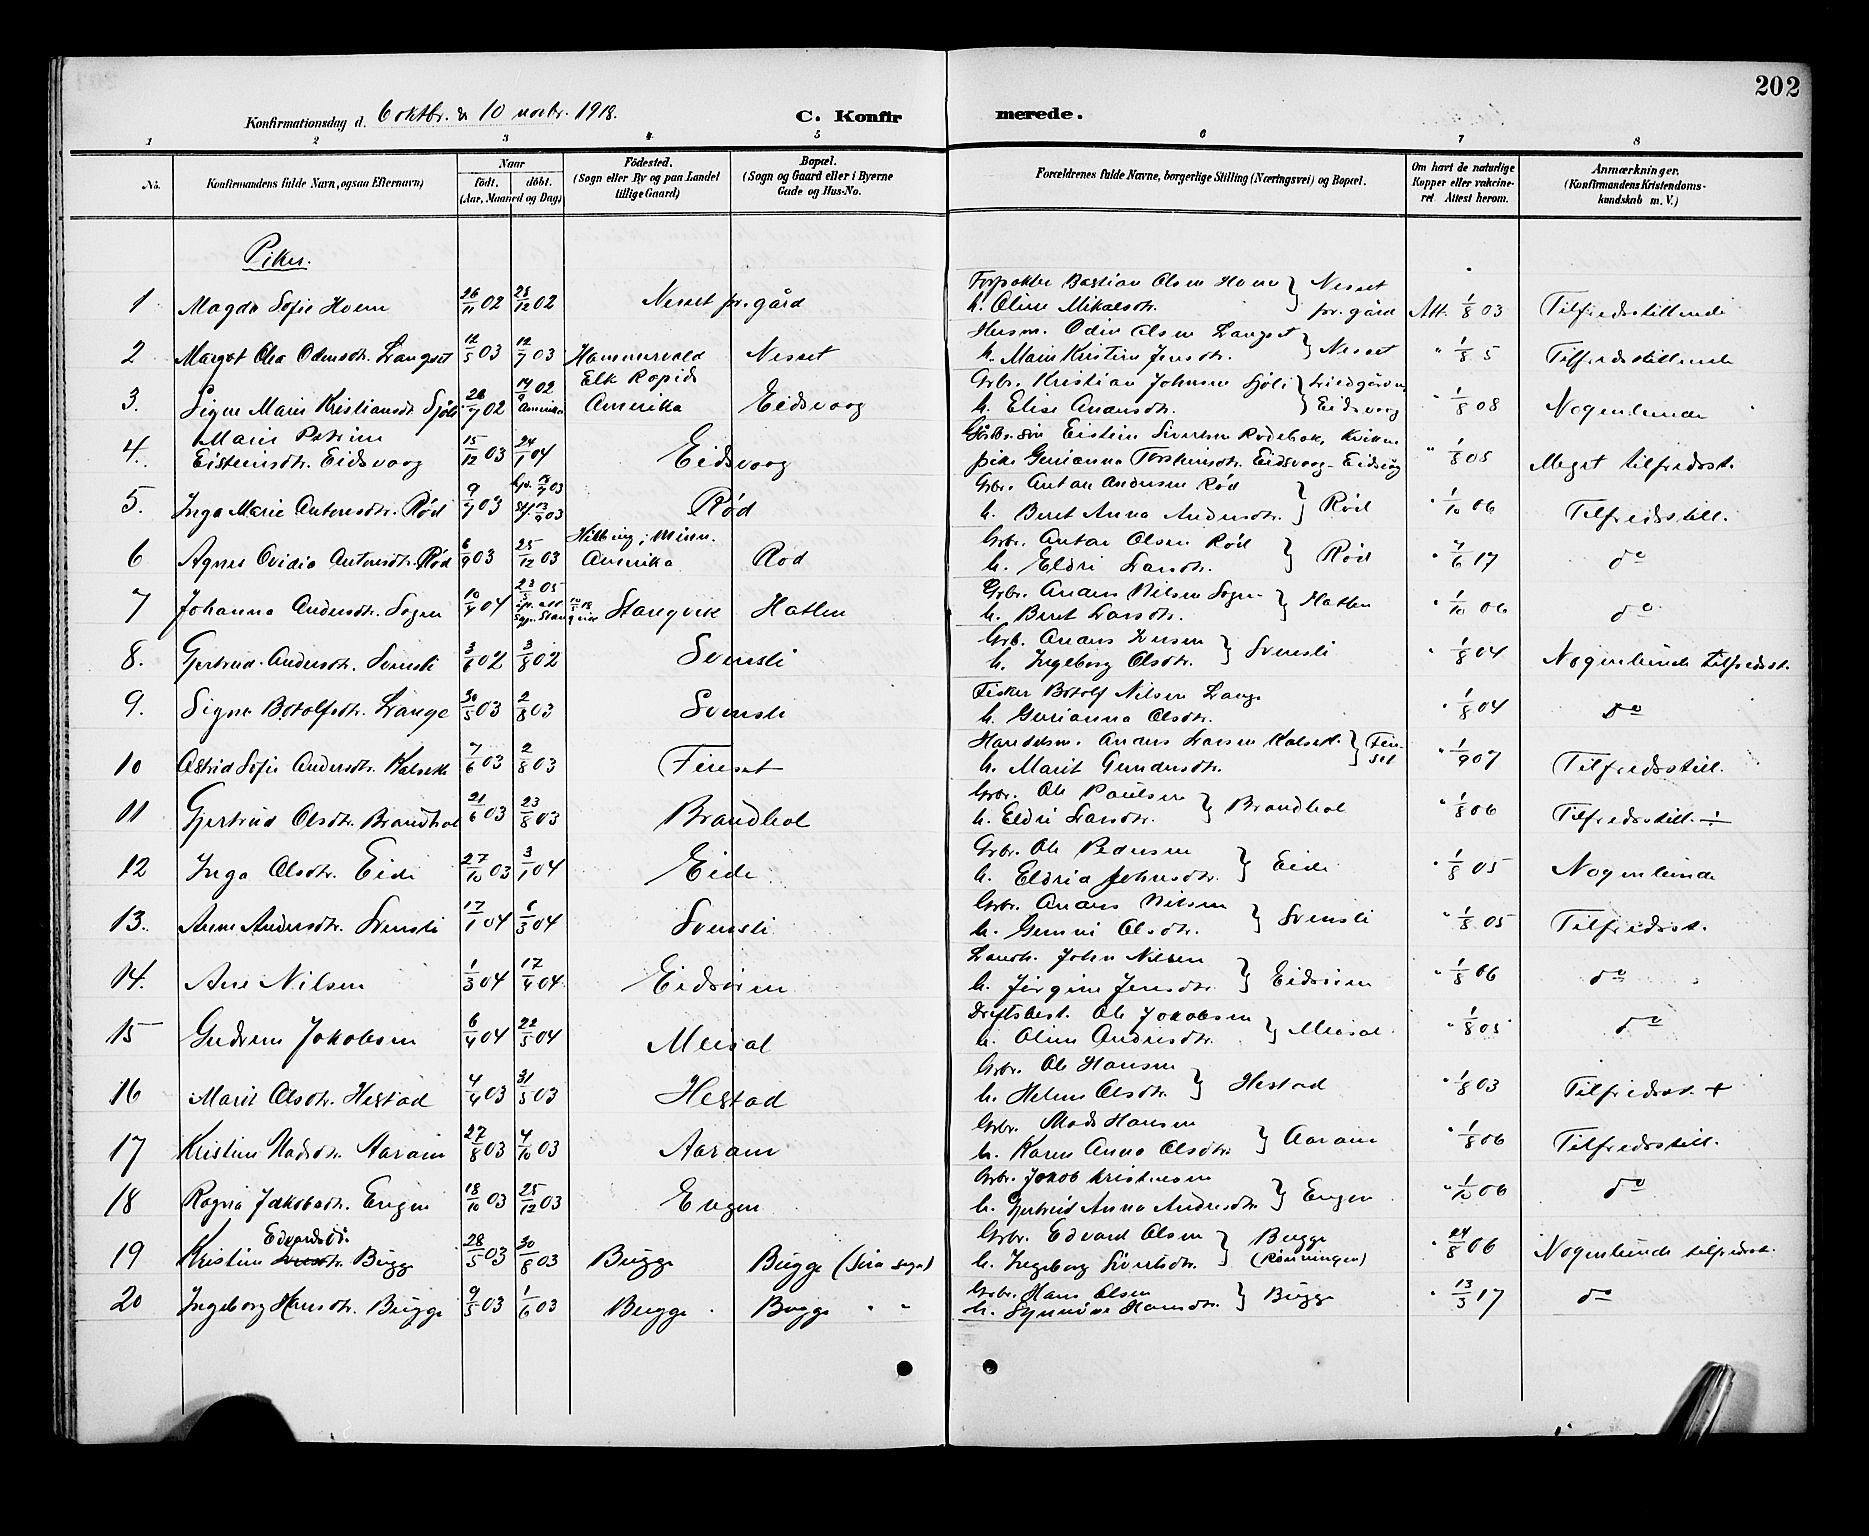 202
Konfirmationsdag d. 6 oktbr. & 10 novbr. 1918.
C. Konfirmerede.
1 2 3 4 5 6 7 8
No. Konfirmandens fulde Navn, ogsaa Efternavn) Naar født. døbt. (Aar, Maaned og Dag) Fødested. (Sogn eller By og paa Landet tillige Gaard) Bopæl. (Sogn og Gaard eller i Byerne Gade og Hus-No. Forældrenes fulde Navne, borgerlige Stilling (Næringsvei) og Bopæl. Om havt de naturlige Kopper eller vakcineret. Attest herom. Anmærkninger. (Konfirmandens Kristendomskundskab m. V.)
Piker.
1 Magda Sofie Hoem 26/11 02 28/12 02 Nesset pr.gård Forpakter Bastian Olsen Hoem h. Oline Mikalsdtr. } Nesset pr. gård Att. 1/8 03 Tilfredsstillende
2 Margot Olea Odinsdtr. Langset 12/5 03 12/7 03 Hammervold Nesset Husm. Odin Olsen Langset h. Marie Kristine Jensdtr. } Nesset " 1/8 5 Tilfredsstillende
3. Signe Marie Kristiansdt. Sjöli 28/7 02 14/9 02 Amerika Elk Rapids Amerika Eidsvaag Grbr. Kristian Johnsen Sjöli h. Elise Andersdtr. } Eidsvaag " 1/8 08 Nogenlunde
4. Marie Petrine Eisteinsdtr. Eidsvaag 15/12 03 24/1 04 Eidsvaag Eistein Sivertsen Rødebok, pike Gurianna Torsteinsdtr. Eidsvaag - Eidsvåg " 1/8 05 Meget tilfredsst.
5. Inga Marie Antonsdtr. Rød 9/7 03 Rød Grbr. Anton Andersen Rød h. Beret Anna Andersdtr. } Rød " 1/10 06 Tilfredsstill.
6 Agnes Ovidia Antonsdtr. Rød 6/9 03 25/12 03 Hibbing, Minn. Amerika Rød Grbr. Anton Olsen Rød h. Eldri Larsdtr. } Rød " 7/6 17 do
7 Johanna Andersdtr. Sogge 10/4 04 Stangvik Hatlen Grbr. Anders Nilsen Sogge h. Beret Larsdtr. } Hatlen " 1/10 06 do
8. Gjertrud Andersdtr. Svensli 3/6 02 3/8 02 Svensli Grb. Anders Iversen h. Ingeborg Olsdtr. } Svensli " 1/8 04 Nogenlunde tilfredsst.
9. Signe Botolfsdtr. Lange 30/5 03 2/8 03 Svensli Fisker Botolf Nilsen Lange h. Gurianna Olsdtr. " 1/8 04 do
10 Astrid Sofie Andersdtr. Kalset 7/6 03 2/8 03 Fireset Handelsm. Anders Larsen Kalset. h. Marit Gundersdtr. } Fireset " 1/9 07 Tilfredsstill.
11 Gjertrud Olsdtr. Brandhol 21/6 03 23/8 03 Brandhol Grbr. Ole Paulsen h. Eldri Larsdtr. } Brandhol " 1/8 06 Tilfredsstill. ÷
12 Inga Olsdtr. Eide 27/10 03 3/1 04 Eide Grbr. Ole Pedersen h. Eldrid Johnsdtr. } Eide " 1/8 05 Nogenlunde
13. Anne Andersdtr. Svensli 17/1 04 6/3 04 Svensli Grbr. Anders Nilsen h. Gunnvi Olsdtr. } Svensli " 1/8 05 Tilfredsst.
14. Ane Nilsen 1/3 04 17/4 04 Eidsøren Landh. John Nilsen h. Jørgine Jensdtr. } Eidsøren " 1/8 06 do
15 Gudrun Jakobsen 6/4 04 22/5 04 Meisal Driftsbest. Ole Jakobsen h. Oline Andersdtr. } Meisal. " 1/8 05 do
16 Marit Olsdtr. Hestad 4/4 03 31/5 03 Hestad Grbr. Ole Hansen h. Helene Olsdtr. } Hestad " 1/8 03 Tilfredsst. +
17 Kristine Madsdtr. Aaram 27/8 03 4/10 03 Aaram Grbr. Mads Hansen h. Karen Anna Olsdtr. } Aaram " 1/8 06 Tilfredsstill.
18 Ragna Jakobsdtr. Engen 18/10 03 25/12 03 Engen Grbr. Jakob Kristensen h. Gjertrud Anna Andersdtr. } Engen " 1/10 06 do
19 Kristine Edvardsdtr. Bugge 28/5 03 30/8 03 Bugge Bugge (Sira sogn) Grbr. Edvard Olsen h. Ingeborg Sivertsdtr. } Bugge (Rønningen) " 24/8 06 Nogenlunde tilfredsst.
20 Ingeborg Hansdtr. Bugge 9/5 03 1/6 03 Bugge Bugge " " Grbr. Hans Olsen h. Synnöve Hansdtr. } Bugge " 13/3 17 do